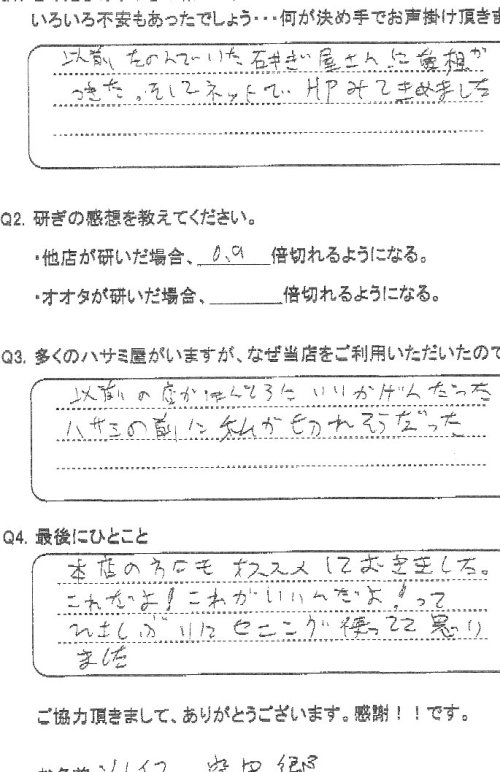 いろいろ不安もあったでしょう・・・何が決め手でお声掛け頂きま
以前たのんでいた研ぎ屋さんに愛想が
つきた。そしてネットで、HPみてきめました
Q2. 研ぎの感想を教えてください。
・他店が研いだ場合、0.9倍切れるようになる。
・オオタが研いだ場合、______倍切れるようになる。
Q3. 多くのハサミ屋がいますが、なぜ当店をご利用いただいたので
以前の店がほんとうにいいかげんだった
ハサミの前に私が切れそうだった
Q4. 最後にひとこと
本店の方にもオススメしておきました。
これだよ！これがいいんだよ！って
ひさしぶりにセニング使ってて思い
ました
ご協力頂きまして、ありがとうございます。感謝！！です。
お名前